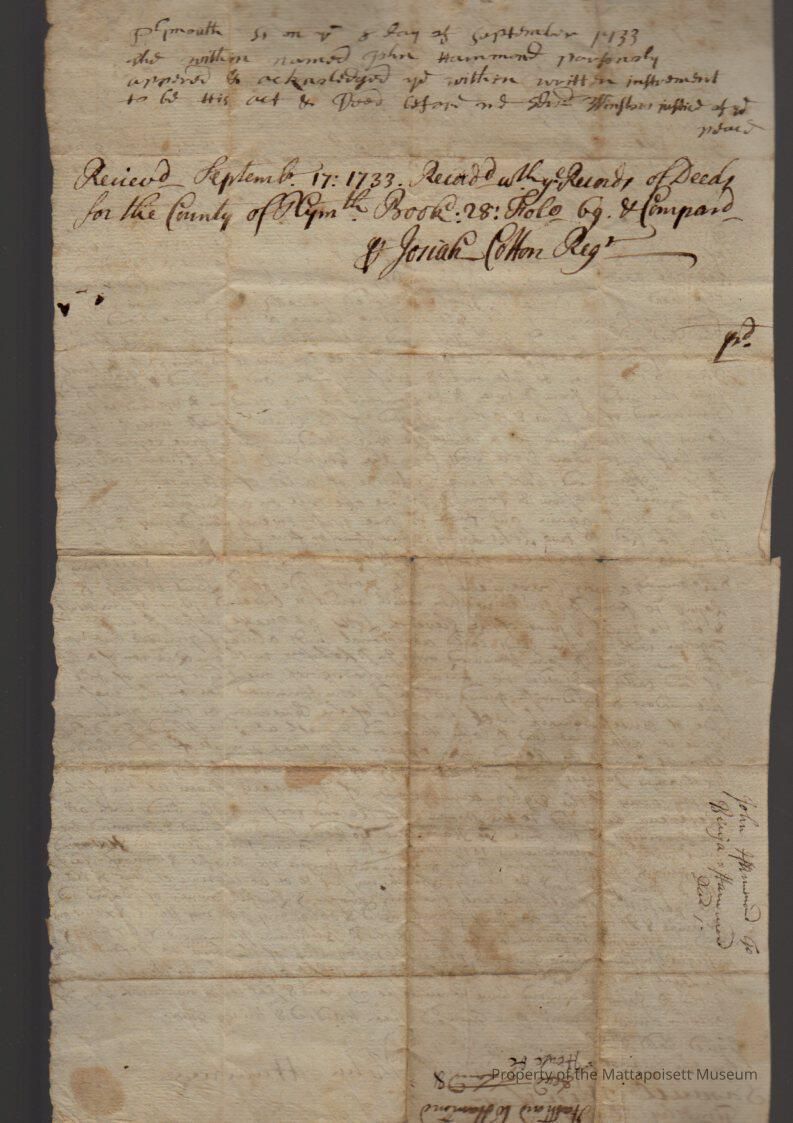 Plymouth Ss on ye 8 day of September 1733
the within named John Hammond personly
appered & acknledged ye within written instrement
to be His act & Deed before me Edwd Winslow justice of ye
peace
Reciev'd Septembr. 17: 1733. Record'd with ye Records of Deeds
for the County of Plymth Book: 28: Folo 69. & Compard
Josiah Cotton Regr
pd.
John Hammond to
Benja: Hammond
Deed
Property of the Mattapoisett Museum